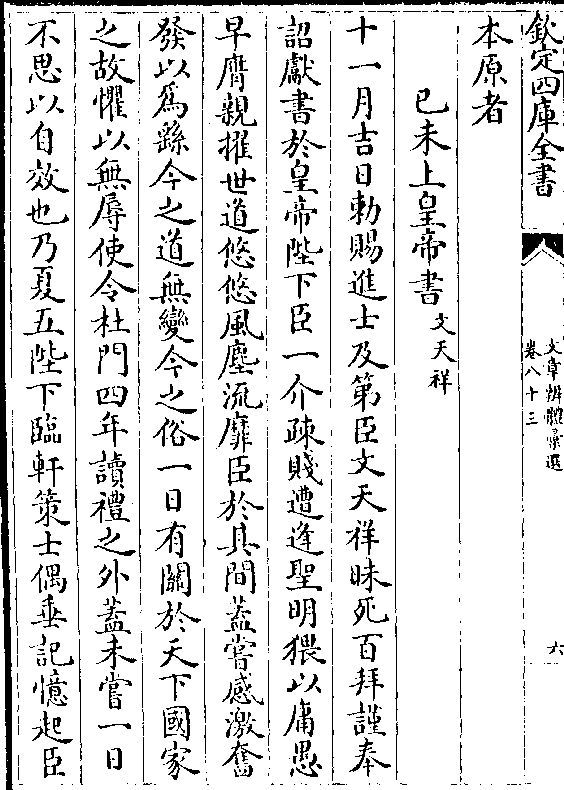 欽定四庫全書
文章辨體彙選
卷八十三
六
本原者
已未上皇帝書 文天祥
十一月吉日勅賜進士及第臣文天祥昧死百拜謹奉
詔獻書於皇帝陛下臣一介疎賤遭逢聖明猥以庸愚
早膺親擢世道悠悠風塵流靡臣於其間蓋嘗感激奮
發以為繇今之道無變今之俗一日有關於天下國家
之故懼以無辱使令杜門四年讀禮之外蓋未嘗一日
不思以自效也乃夏五陛下臨軒策士偶垂記憶起臣